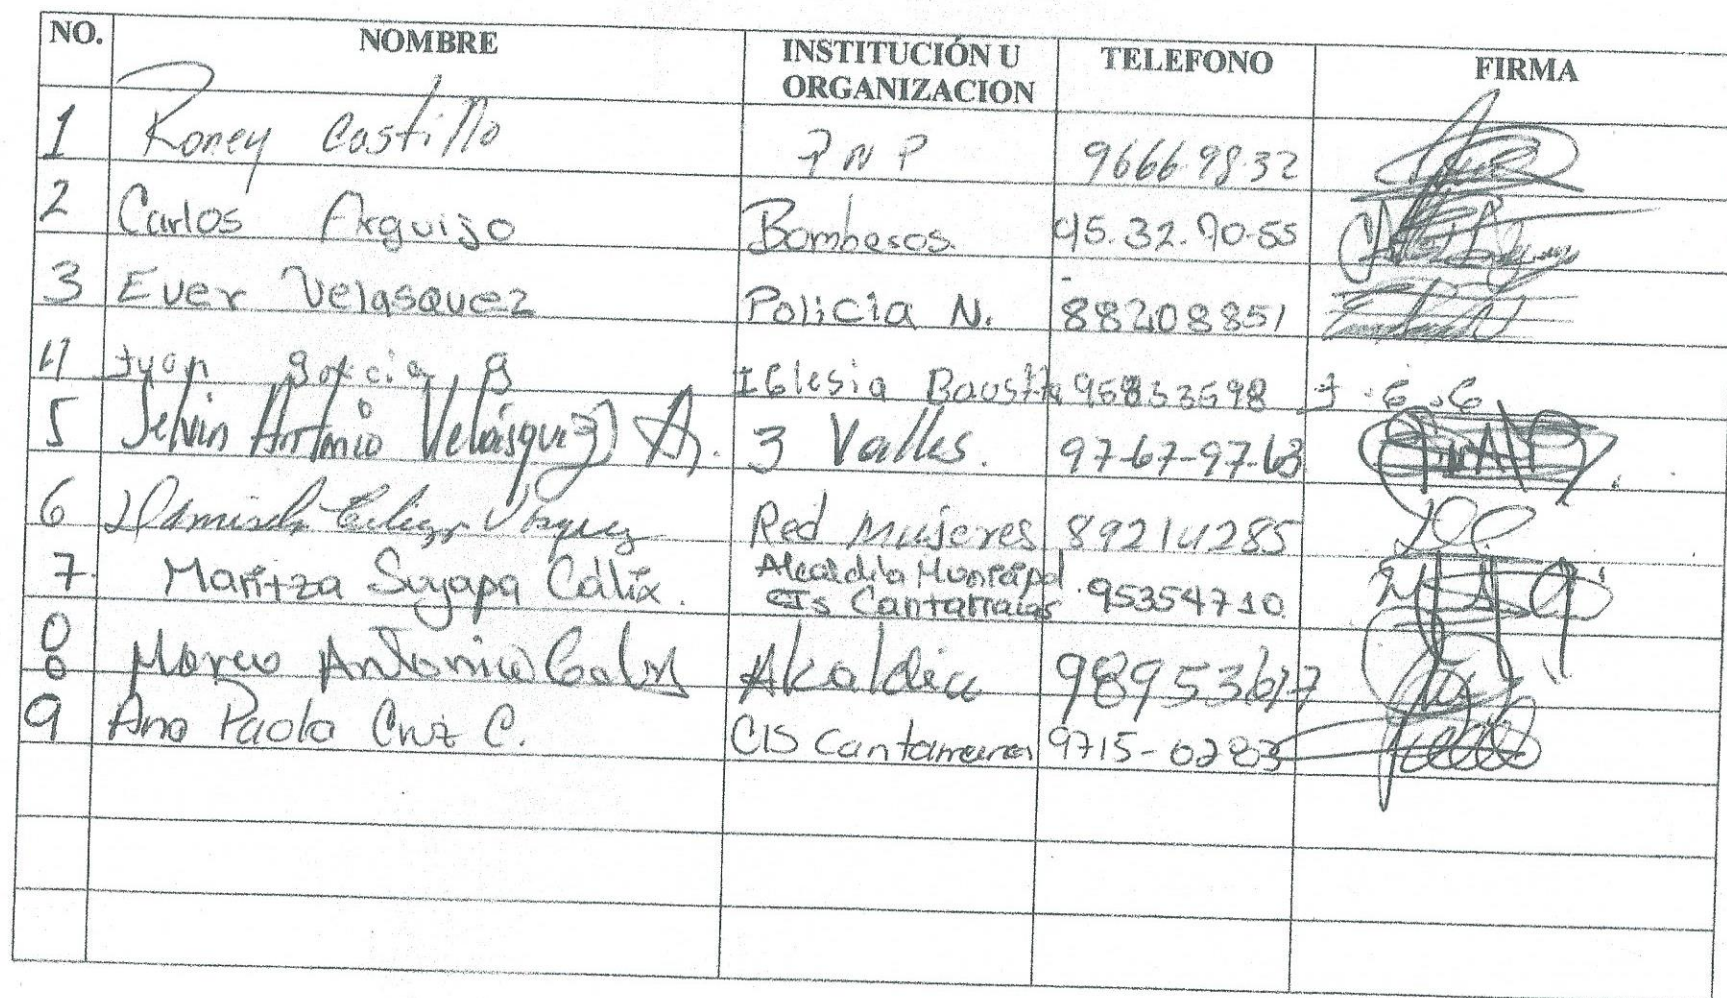 NO. NOMBRE INSTITUCIÓN U ORGANIZACION TELEFONO FIRMA
1 Roney Castillo PNP 9666 98-32
2 Carlos Arguijo Bomberos. 95.32.90.55
3 Ever Velasquez Policia N. 88208851
4 garcia, g IGlesia Bausta J.G.G
5 Antonio Velásquez A. 3 Valles. 97-67-97-63
6 Red Mujeres 89214285
7. Maritza Suyapa Cálix. Alcaldía Municipal CIS Cantarraias 95354710
8 Marco Antonio Alcaldia
9 Ana Paola Cruz C. CIS Cantarrana 9715-0283